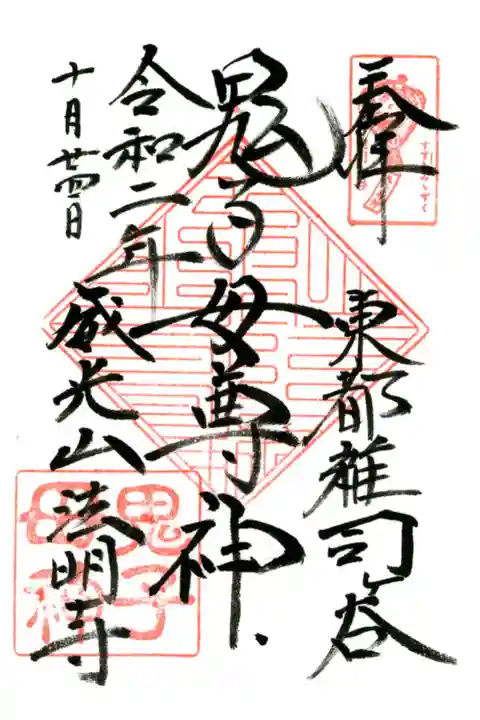 奉拝
東都雑司ヶ谷
鬼子母尊神
令和二年
十月廿四日
威光山法明寺
鬼子母神